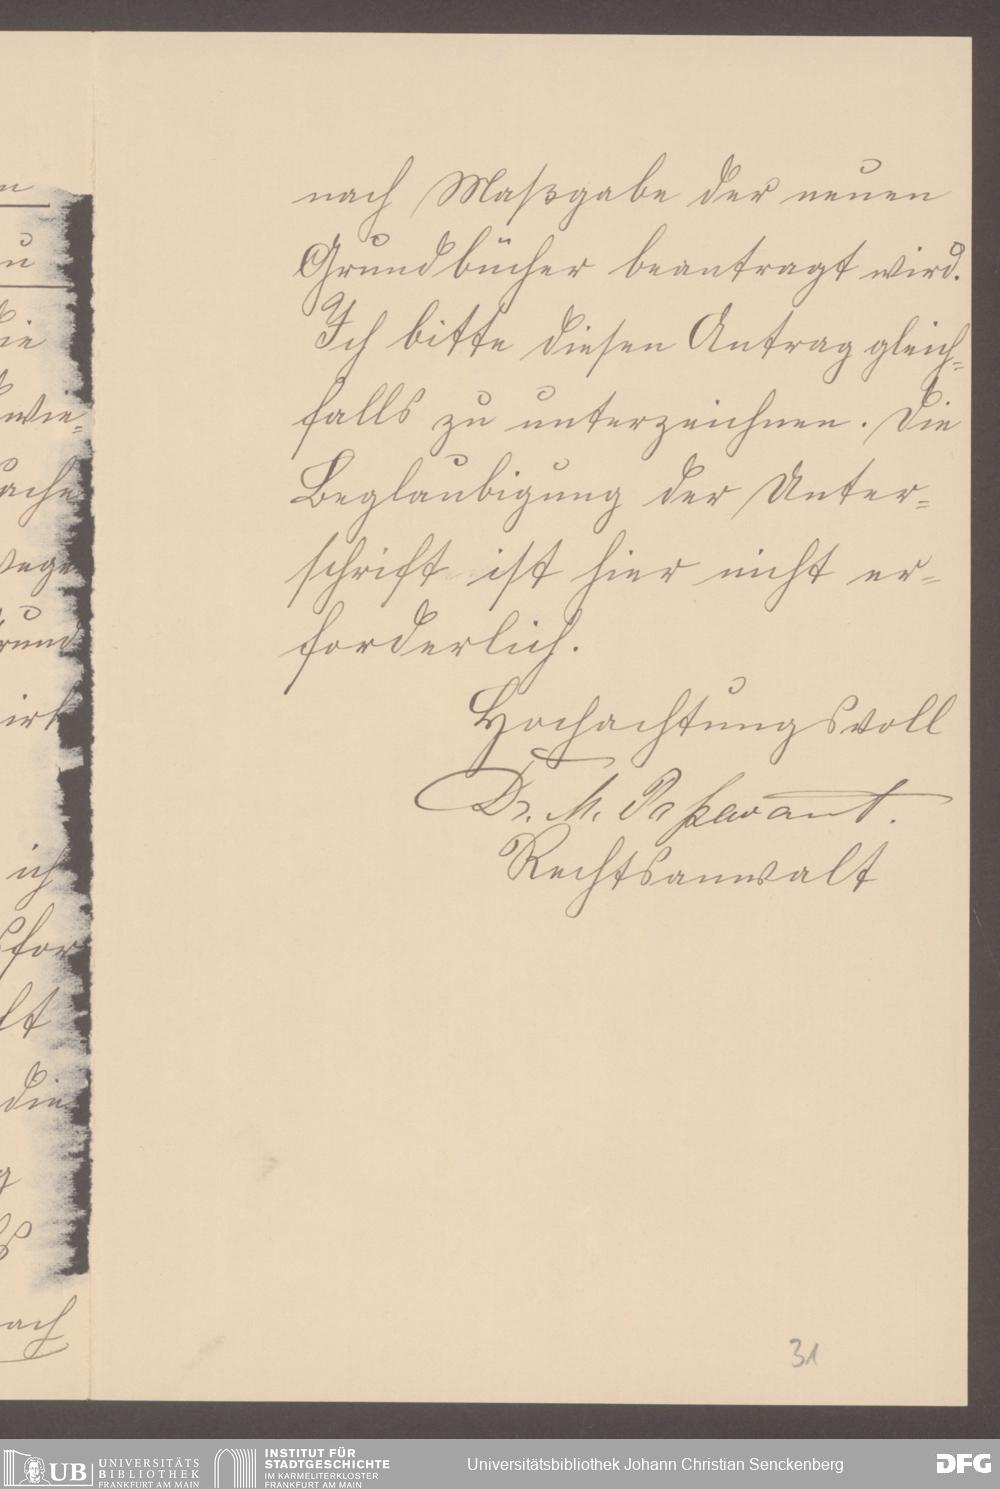 nach Maßgabe der neuen
Grundbücher beantragt wird.
Ich bitte diesen Antrag gleich=
falls zu unterzeichnen. Die
Beglaubigung der Unter=
schrift ist hier nicht er=
forderlich.
Hochachtungsvoll
Dr. M. Passavant.
Rechtsanwalt
31
zu
die
wie=
ache
wege
irk
ich
sfor
lt
die
g
ach
UB UNIVERSITÄTS
BIBLIOTHEK
FRANKFURT AM MAIN
INSTITUT FÜR
STADTGESCHICHTE
IM KARMELITERKLOSTER
FRANKFURT AM MAIN
Universitätsbibliothek Johann Christian Senckenberg
DFG